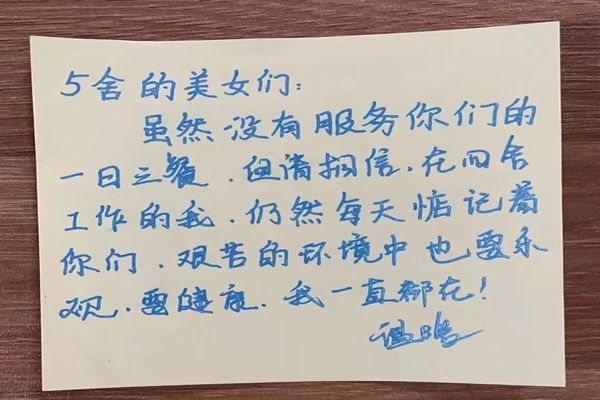 5舍的美女们：
虽然没有服务你们的
一日三餐，但请相信，在四舍
工作的我，仍然每天惦记着
你们，艰苦的环境中也要乐
观，要健康，我一直都在！